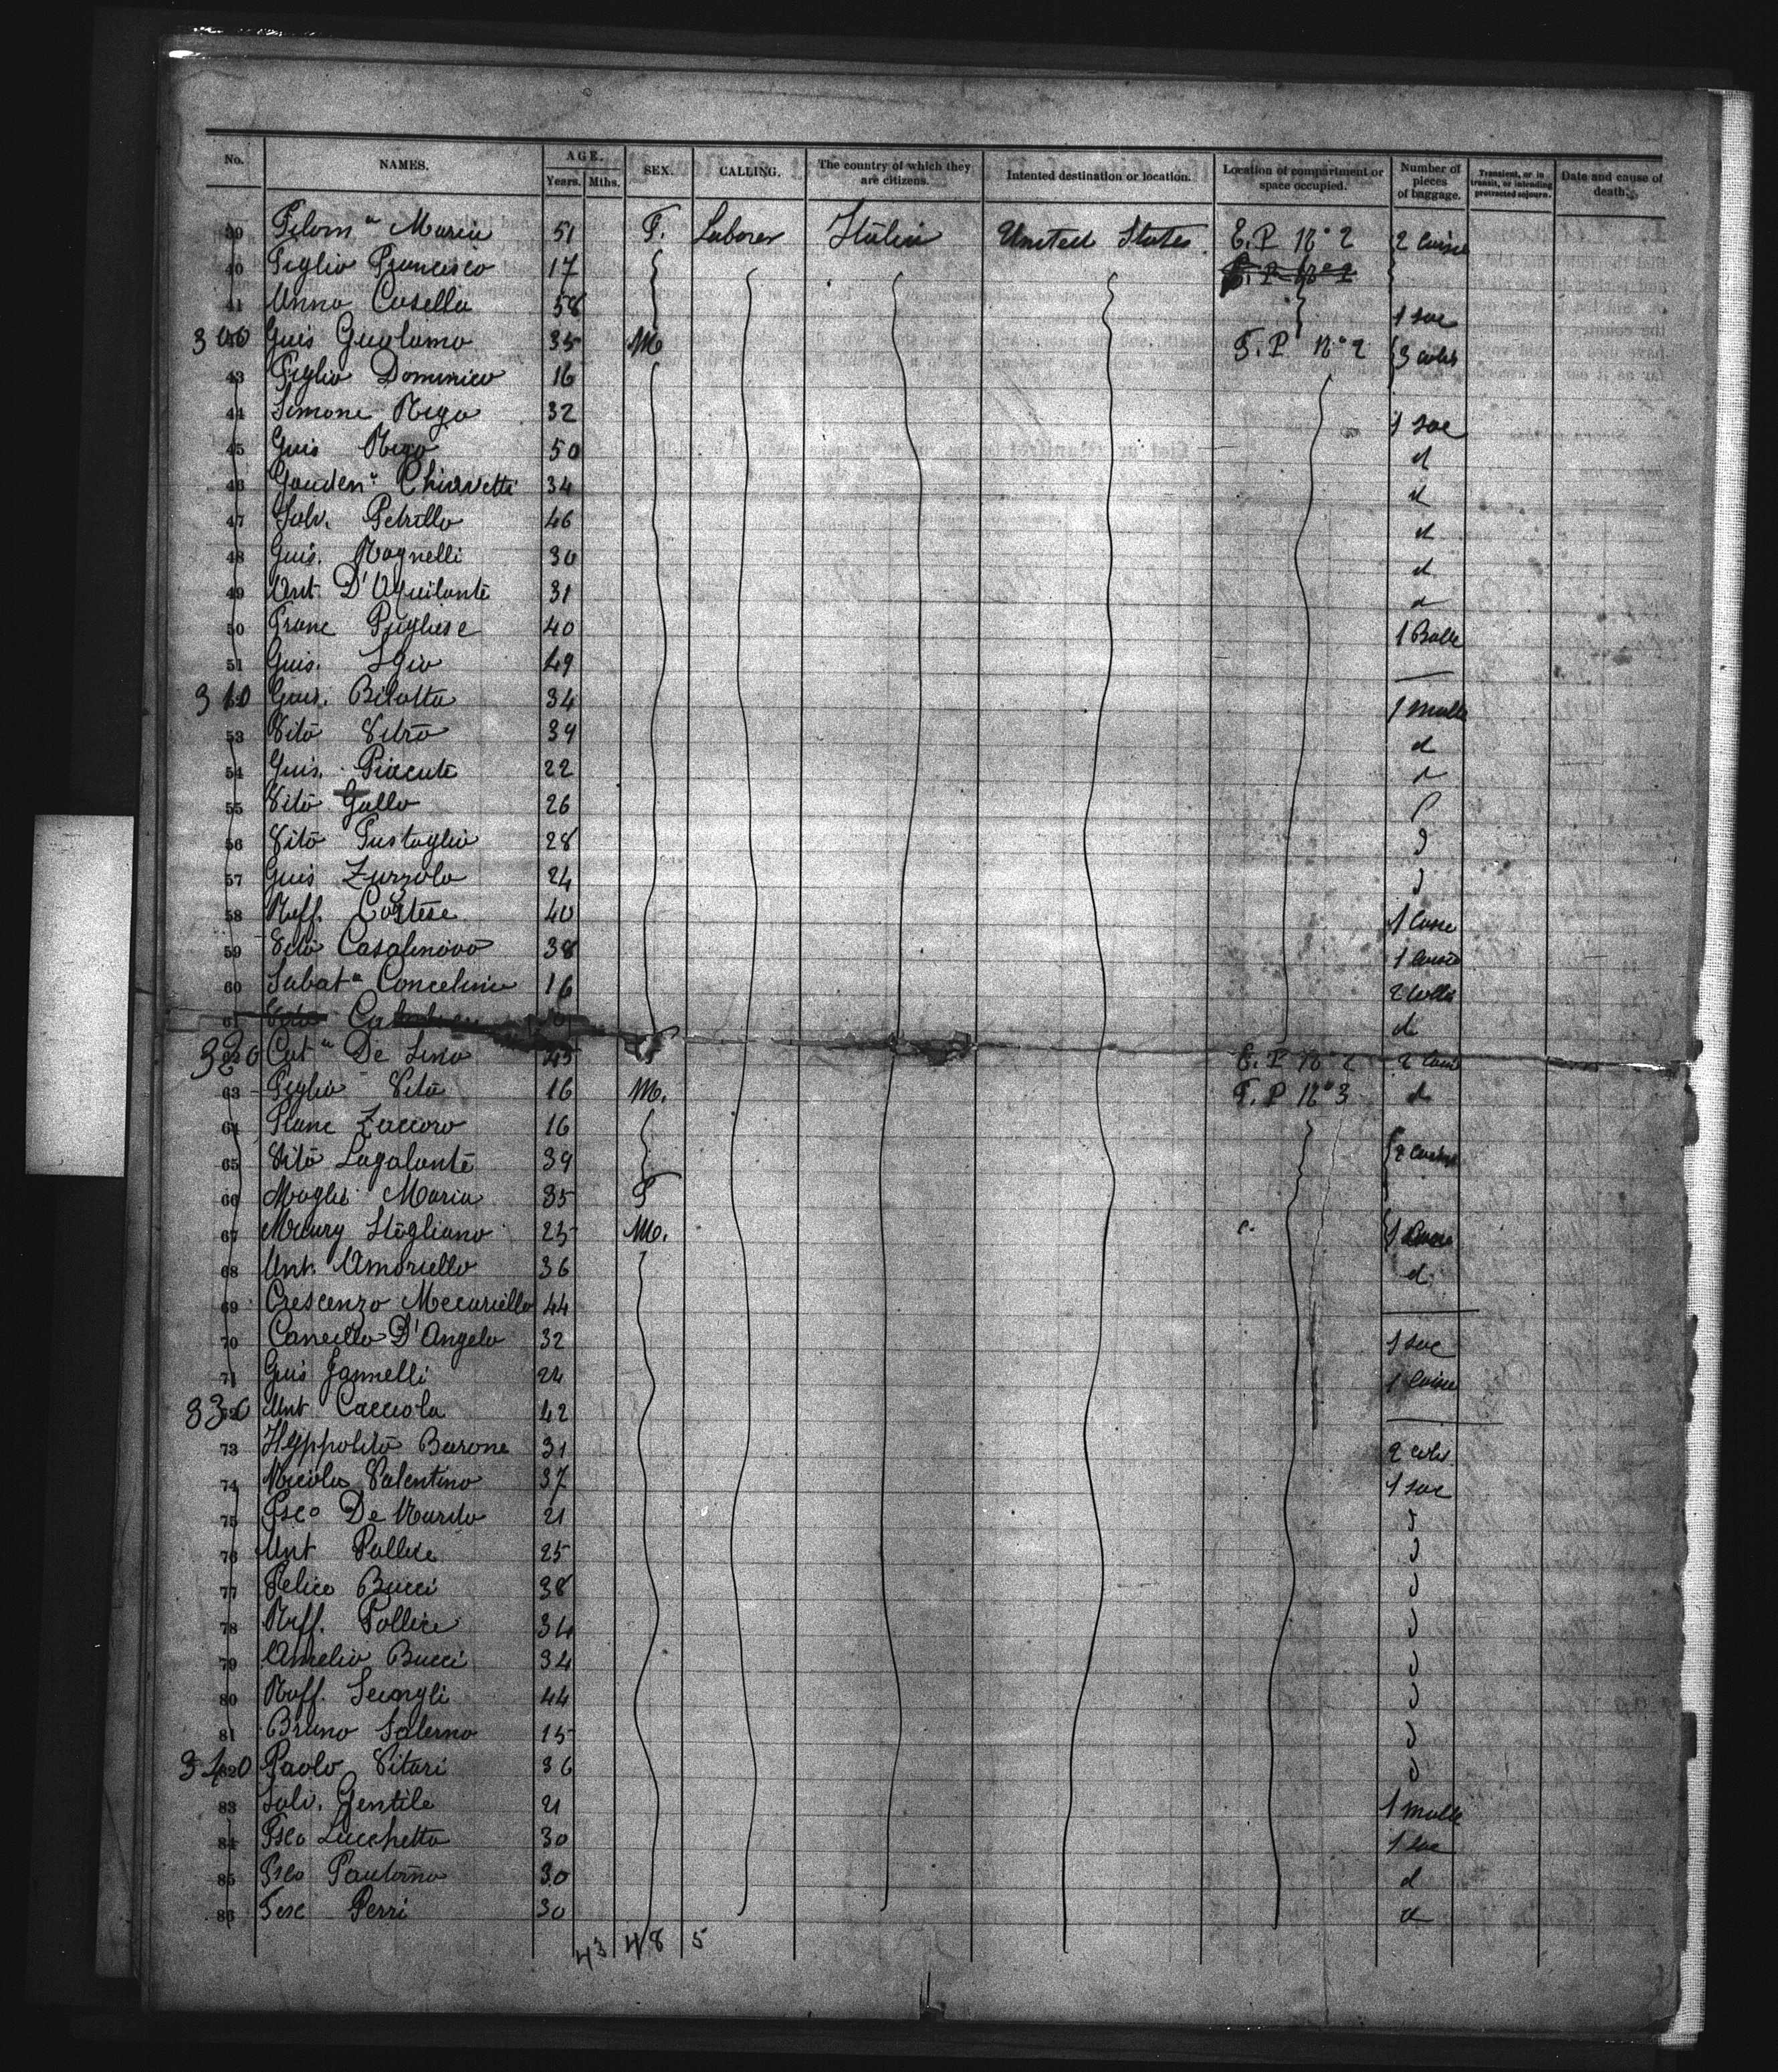 No. NAMES. AGE. Years. Mths. SEX. CALLING. The country of which they are citizens. Intented destination or location. Location of compartment or space occupied. Number of pieces of baggage. Transient, or in transit, or intending protracted sojourn. Date and cause of death.
39 Filom a Maria 51 F. Laborer Italia United States E. P N° 2 2 Caisse
40 Figlio Francesco 17 E. P N° 2
41 Anna Casella 58 1 sac
300 Guis Gualamo 35 M F. P N° 2 3 colis
43 Figlio Dominico 16
44 Simone Rego 32 1 sac
45 Guis Rego 50 d
46 Gauden a Chiarvetti 34 d
47 Salv. Petrillo 46 d
48 Guis. Magnelli 30 d
49 Ant. D'Aquilante 31 d
50 Franc Pugliese 40 1 Balle
51 Guis. 49
310 Bilotta 34 1 malle
53 Vito Vitro 39 d
54 Guis. Piacute 22 d
55 Vito Gallo 26
56 Vito Pustaglio 28
57 Guis Zurzolo 24
58 Raff. Cortese 40 1 Caisse
59 Vito Casalinovo 38 1 Caisse
60 Sabat a Concelina 16 2 Collis
61 Vito d
320 Cat a De Simo 45 F E. P N° 2 2 Caisse
63 Figlio Vito 16 M. F. P N° 3 d
64 Franc Zaccaro 16
65 Vito Lagalante 39
66 Moglie Maria 35 F
67 Stogliano 25 M. 1
68 Ant. Amoriello 36 d
69 Crescenzo Mecariello 44
70 D'Angelo 32 1 sac
71 Guis Jannelli 24 1 Caisse
330 Ant Cacciola 42
73 Hyppolito Barone 31 2 colis
74 Nicola Valentino 37 1 sac
75 Fsco De Nardo 21
76 Ant Pollice 25
77 Felice Bucci 38
78 Raff. Pollice 34
79 Amelio Bucci 34
80 Raff. 44
81 Bruno Salerno 15
340 Paolo Vitari 36
83 Salv. Gentile 21 1 malle
84 Fsco Lucchetta 30 1 sac
85 Fsco 30 d
86 Fesc Perri 30 d
43 48 5